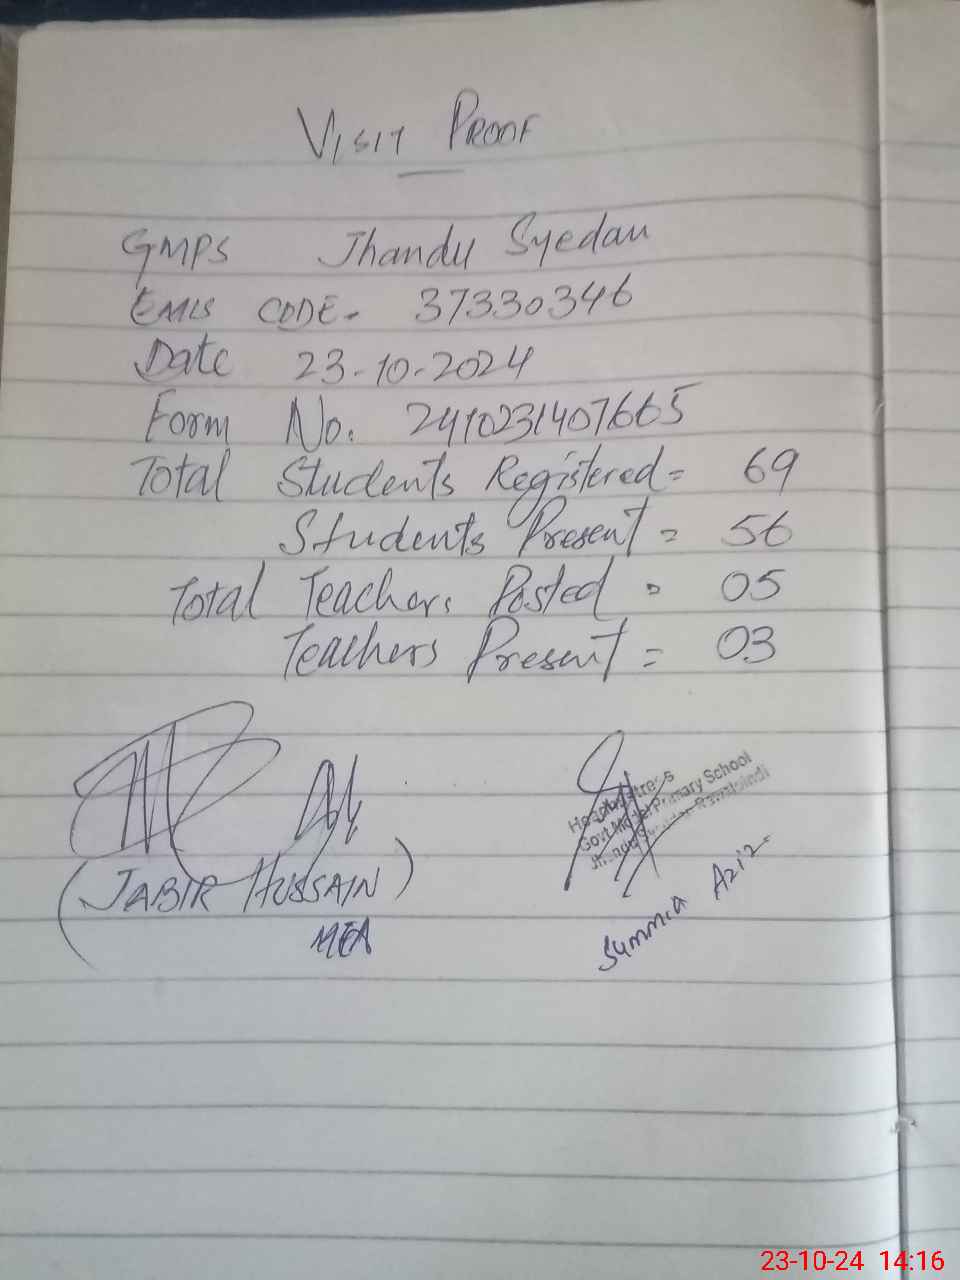 VISIT PROOF
GMPS Jhandu Syedan
EMIS CODE. 37330346
Date 23-10-2024
Form No. 2410231407665
Total Students Registered = 69
Students Present = 56
Total Teachers Posted = 05
Teachers Present = 03
Headmistress
Govt. Model Primary School
Rawalpindi
(JABIR HUSSAIN)
MEA
Summia Aziz
23-10-24 14:16